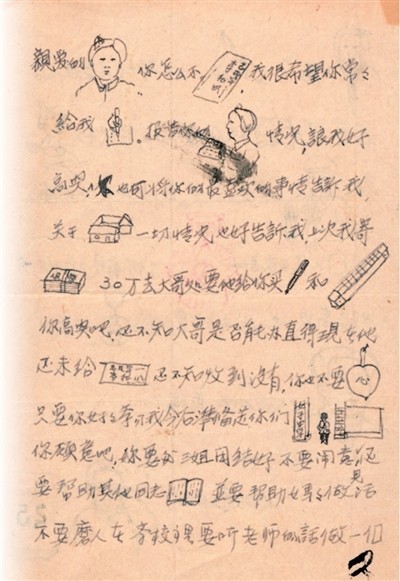 親愛的 你怎么不 我很希望你常々
給我 。報告你的 情况,讓我好
高兴,你也可將你的最喜欢的事情告訴我,
关于 一切情况也好告訴我,上次我寄
30万去大哥処要他給你买 和
你高兴吧,还不知大哥是否能办直得現在他
还未給 还不知收到沒有,你也不要 心
只要你好好 我今后準备送你们
你願意吧,你要分三姐团结好不要闹意見
要帮助其他同志 並要帮助 做活
不要磨人在学校里要听老师的話做一们